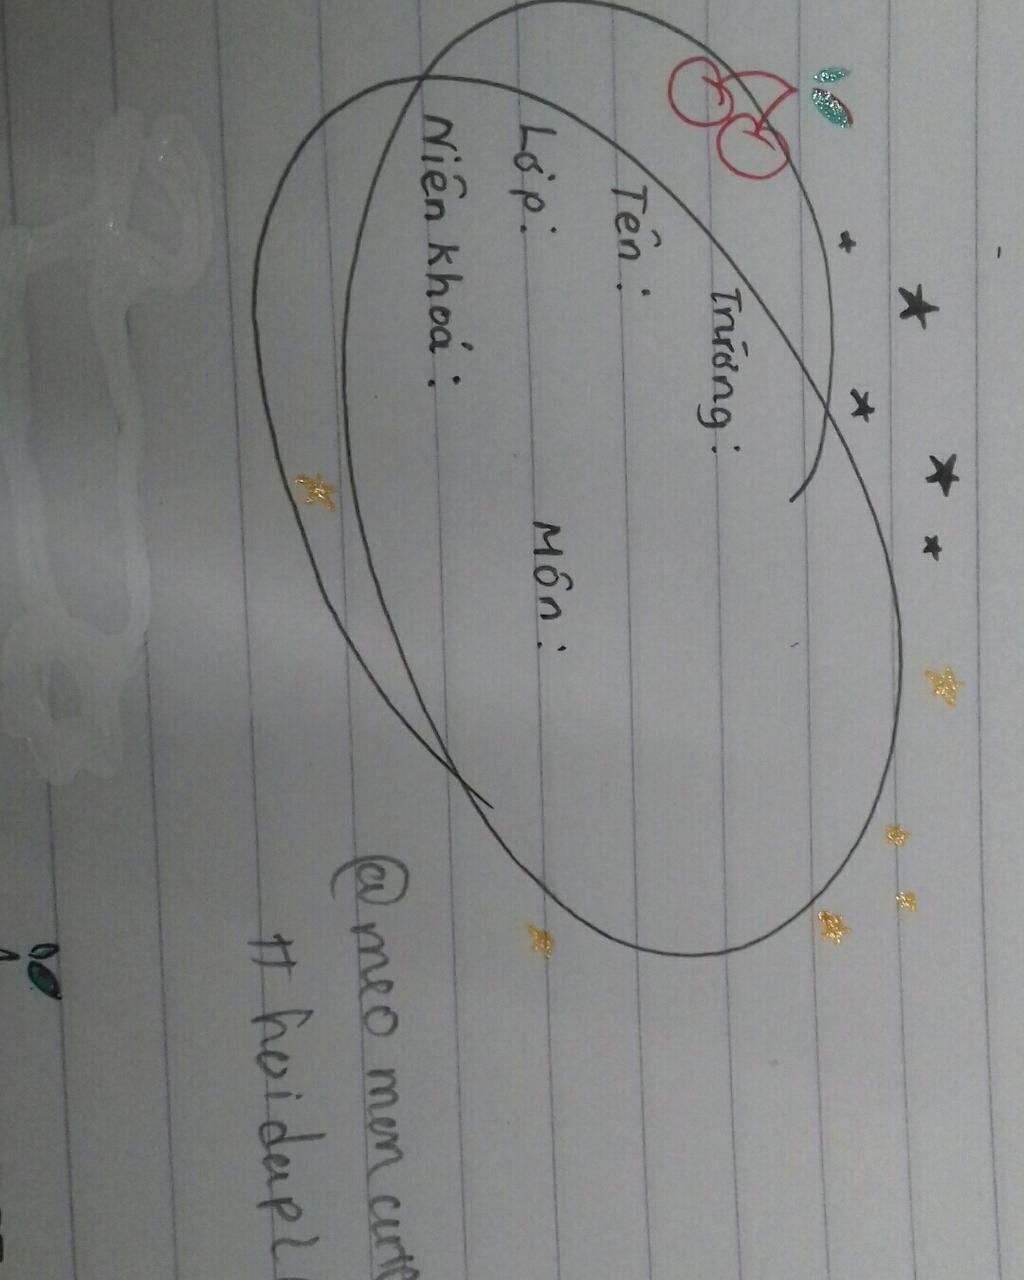 Trường:
Tên:
Lớp: Môn:
Niên khoá:
@meo mem cute
# hoidap